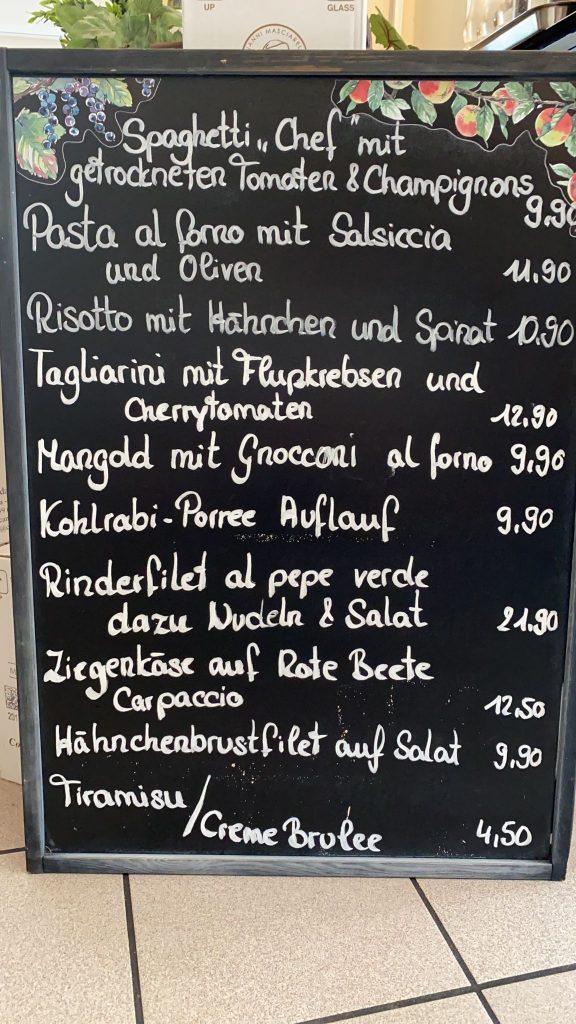 UP
GLASS
Spaghetti „Chef" mit
getrockneten Tomaten & Champignons
9,90
Pasta al forno mit Salsiccia
und Oliven 11,90
Risotto mit Hähnchen und Spinat 10,90
Tagliarini mit Flußkrebsen und
Cherrytomaten 12,90
Mangold mit Gnocconi al forno 9,90
Kohlrabi-Porree Auflauf 9,90
Rinderfilet al pepe verde
dazu Nudeln & Salat 21,90
Ziegenkäse auf Rote Beete
Carpaccio 12,50
Hähnchenbrustfilet auf Salat 9,90
Tiramisu/
Creme Brulee 4,50